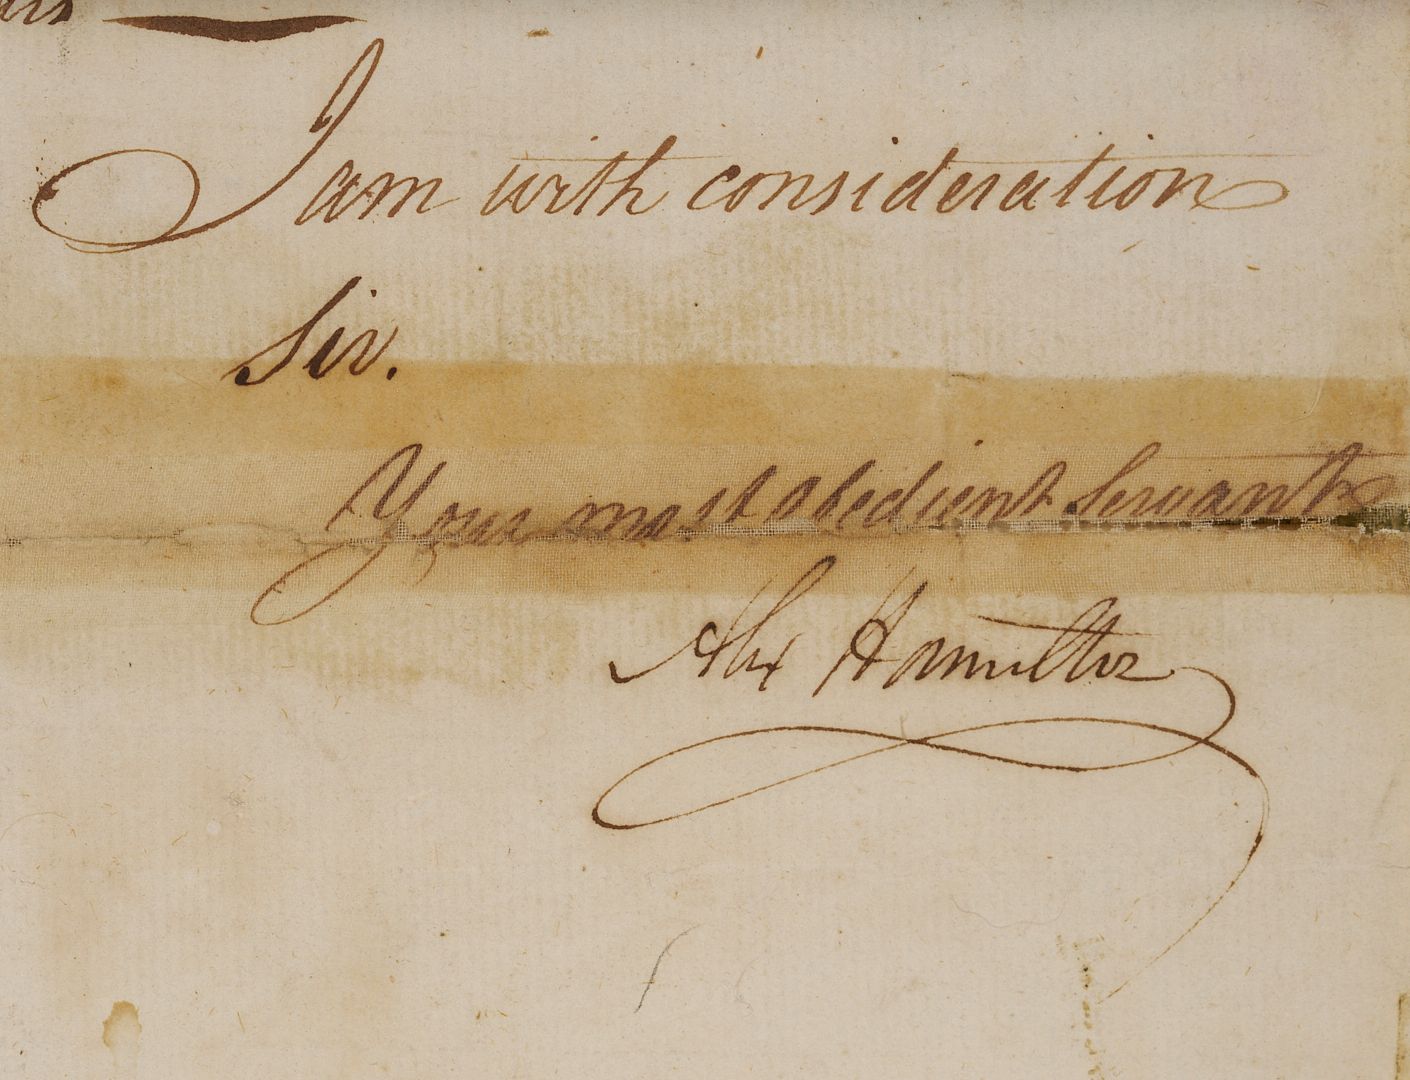 I am with consideration
Sir.
Your most obedient servant
Alex Hamilton